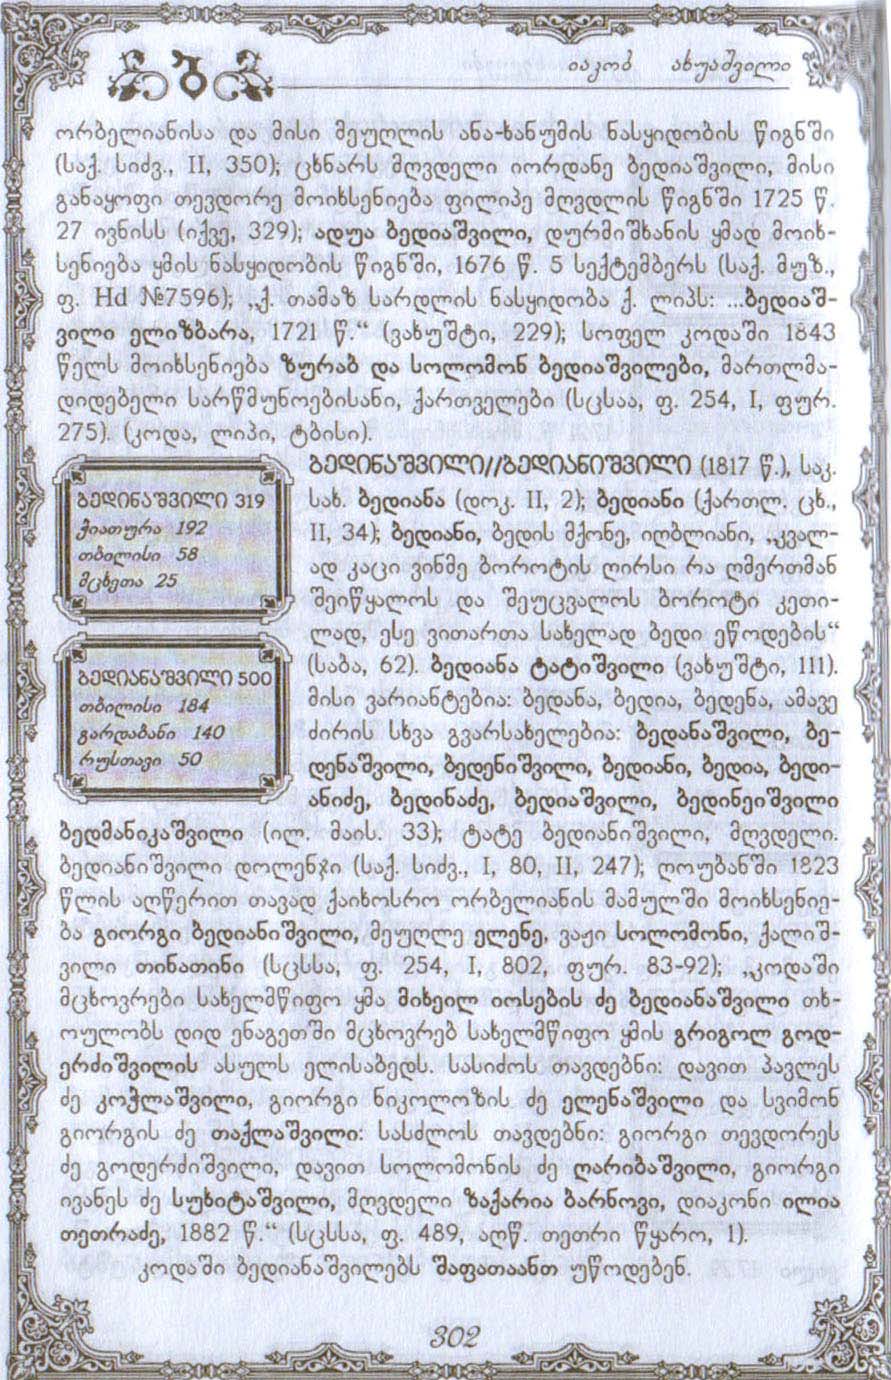 იაკობ ახუაშვილი
ორბელიანისა და მისი მეუღლის ანა-ხანუმის ნასყიდობის წიგნში
(საქ. სიძვ., II, 350); ცხნარს მღვდელი იორდანე ბედიაშვილი, მისი
განაყოფი თევდორე მოიხსენიება ფილიპე მღვდლის წიგნში 1725 წ.
27 ივნისს (იქვე, 329); ადუა ბედიაშვილი, დურმიშხანის ყმად მოიხ-
სენიება ყმის ნასყიდობის წიგნში, 1676 წ. 5 სექტემბერს (საქ. მუზ.,
ფ. Hd №7596); „ქ. თამაზ სარდლის ნასყიდობა ქ. ლიპს: ...ბედიაშ-
ვილი ელიზბარა, 1721 წ.“ (ვახუშტი, 229); სოფელ კოდაში 1843
წელს მოიხსენიება ზურაბ და სოლომონ ბედიაშვილები, მართლმა-
დიდებელი სარწმუნოებისანი, ქართველები (სცსაა, ფ. 254, I, ფურ.
275). (კოდა, ლიპი, ტბისი).
ბედინაშვილი 319
ჭიათურა 192
თბილისი 58
მცხეთა 25
ბედიანაშვილი 500
თბილისი 184
გარდაბანი 140
რუსთავი 50
ბედინაშვილი//ბედიანიშვილი (1817 წ.), საკ.
სახ. ბედიანა (დოკ. II, 2); ბედიანი (ქართლ. ცხ.,
II, 34); ბედიანი, ბედის მქონე, იღბლიანი, „კვალ-
ად კაცი ვინმე ბოროტის ღირსი რა ღმერთმან
შეიწყალოს და შეუცვალოს ბოროტი კეთი-
ლად, ესე ვითართა სახელად ბედი ეწოდების“
(საბა, 62). ბედიანა ტატიშვილი (ვახუშტი, 111).
მისი ვარიანტებია: ბედანა, ბედია, ბედენა, ამავე
ძირის სხვა გვარსახელებია: ბედანაშვილი, ბე-
დენაშვილი, ბედენიშვილი, ბედიანი, ბედია, ბედი-
ანიძე, ბედინაძე, ბედიაშვილი, ბედინეიშვილი
ბედმანიკაშვილი (ილ. მაის. 33); ტატე ბედიანიშვილი, მღვდელი.
ბედიანიშვილი დოლენჯი (საქ. სიძვ., I, 80, II, 247); ღოუბანში 1823
წლის აღწერით თავად ქაიხოსრო ორბელიანის მამულში მოიხსენიე-
ბა გიორგი ბედიანიშვილი, მეუღლე ელენე, ვაჟი სოლომონი, ქალიშ-
ვილი თინათინი (სცსსა, ფ. 254, I, 802, ფურ. 83-92); „კოდაში
მცხოვრები სახელმწიფო ყმა მიხეილ იოსების ძე ბედიანაშვილი თხ-
ოულობს დიდ ენაგეთში მცხოვრებ სახელმწიფო ყმის გრიგოლ გოდ-
ერძიშვილის ასულს ელისაბედს. სასიძოს თავდებნი: დავით პავლეს
ძე კოჭლაშვილი, გიორგი ნიკოლოზის ძე ელენაშვილი და სვიმონ
გიორგის ძე თაქლაშვილი: სასძლოს თავდებნი: გიორგი თევდორეს
ძე გოდერძიშვილი, დავით სოლომონის ძე ღარიბაშვილი, გიორგი
ივანეს ძე სუხიტაშვილი, მღვდელი ზაქარია ბარნოვი, დიაკონი ილია
თეთრაძე, 1882 წ.“ (სცსსა, ფ. 489, აღწ. თეთრი წყარო, 1).
კოდაში ბედიანაშვილებს შაფათაანთ უწოდებენ.
302